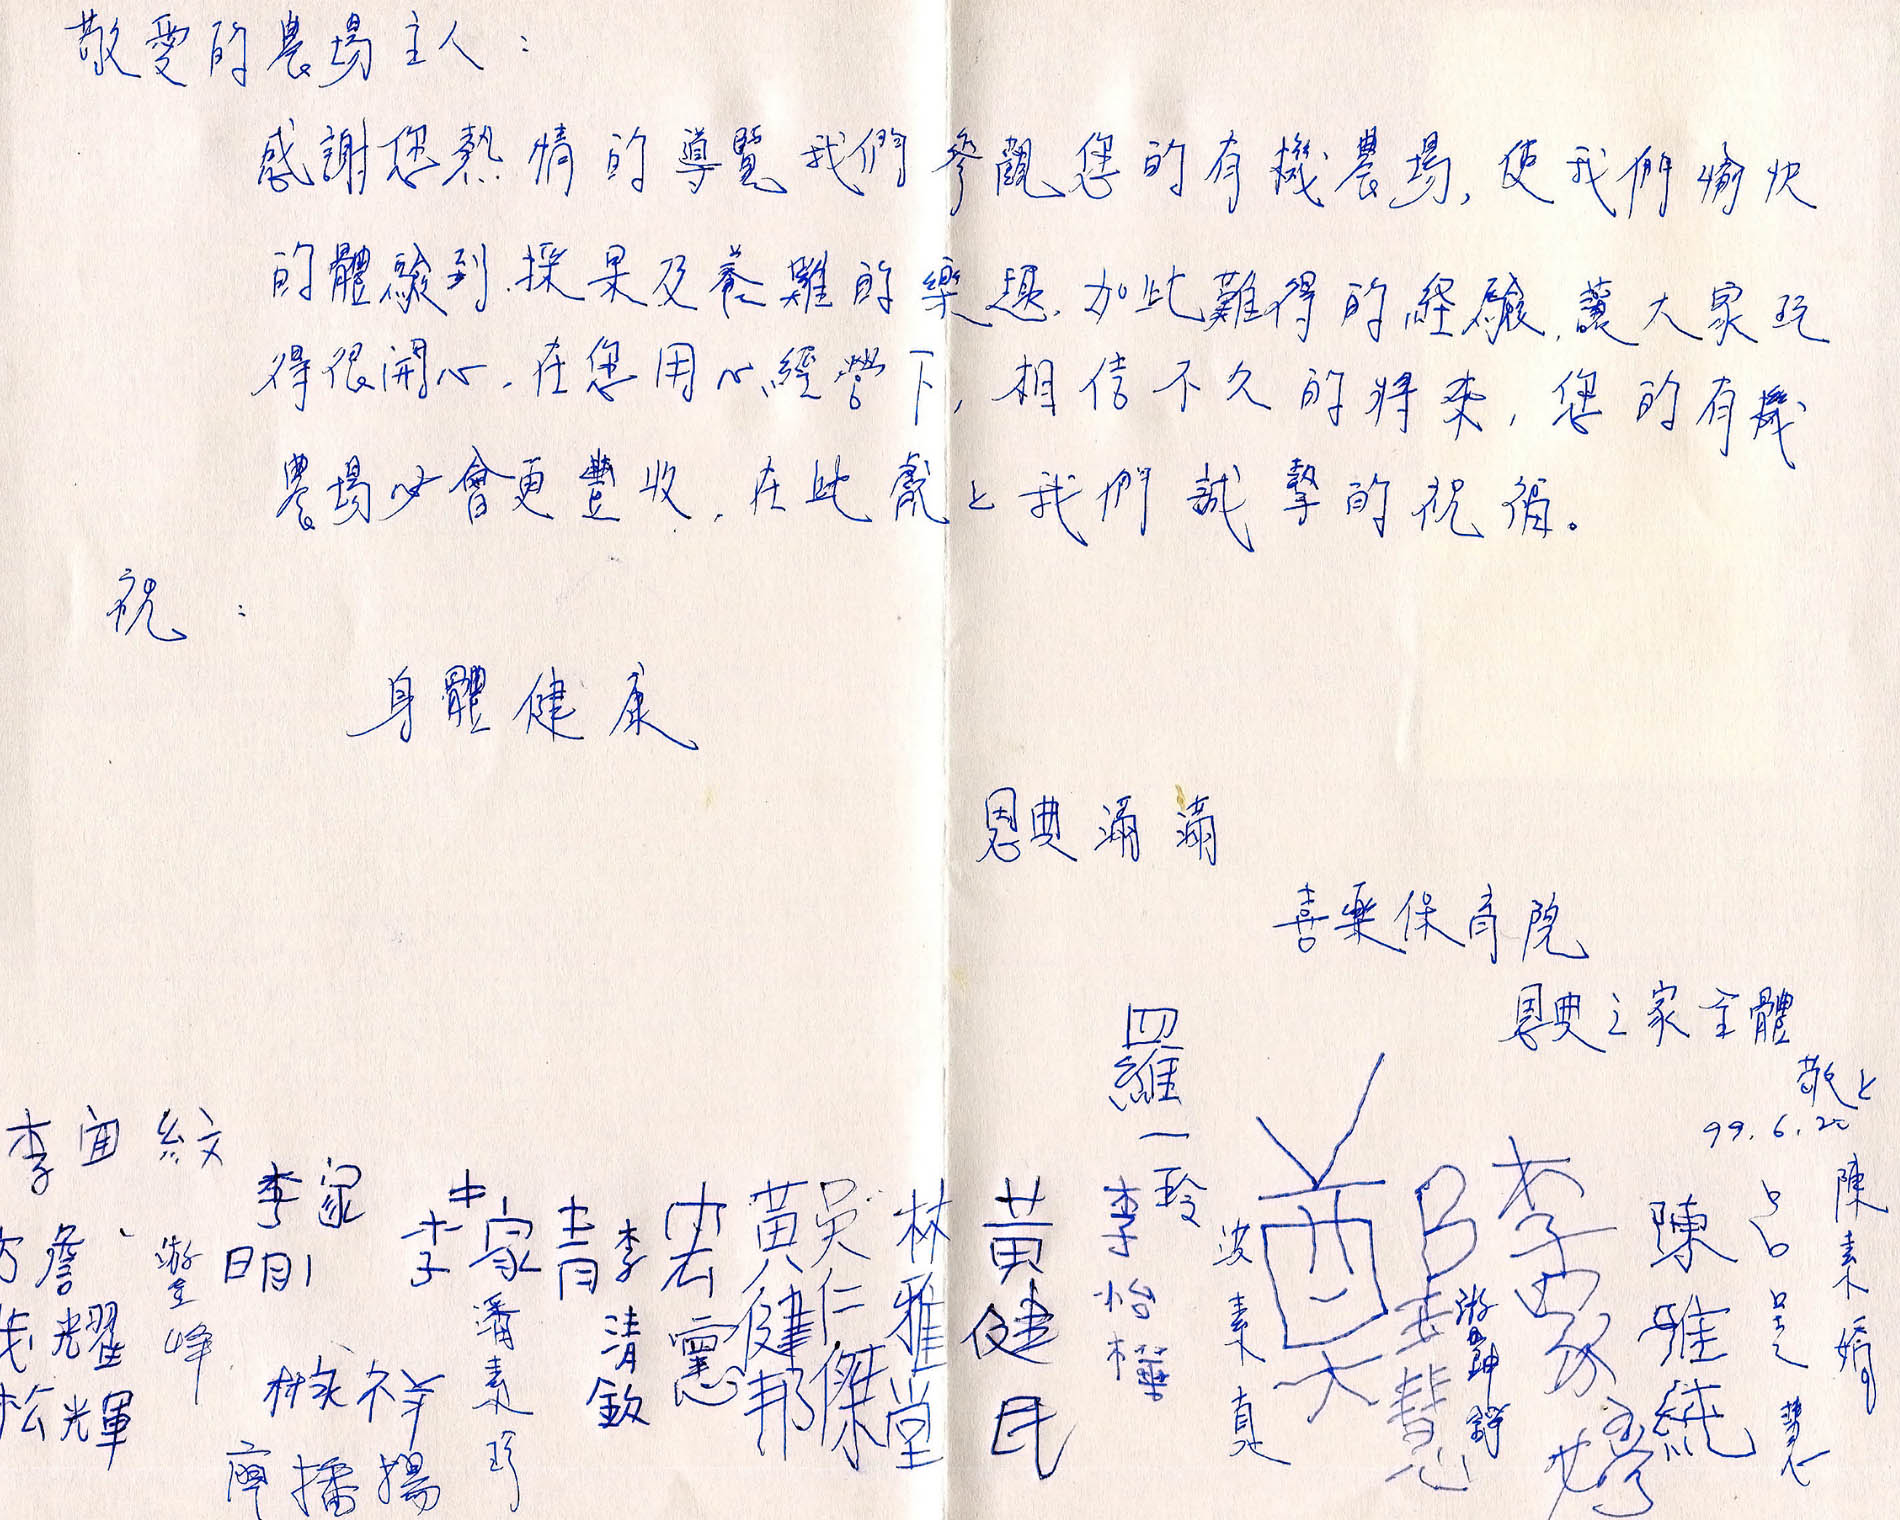 敬愛的農場主人：
感謝您熱情的導覽我們參觀您的有機農場，使我們愉快
的體驗到採果及養雞的樂趣，如此難得的經驗，讓大家玩
得很開心，在您用心經營下，相信不久的將來，您的有機
農場必會更豐收，在此獻上我們誠摯的祝福。
祝：
身體健康
恩典滿滿
喜樂保育院
恩典之家全體
敬上
99.6.20
陳素嬌
呂昱慧
陳雅純
羅一玲
李怡樺
黃健民
林雅堂
吳仁傑
黃健邦
李清敏
李家青
潘素珍
李家明
李宙紋
詹耀輝
廖播揚